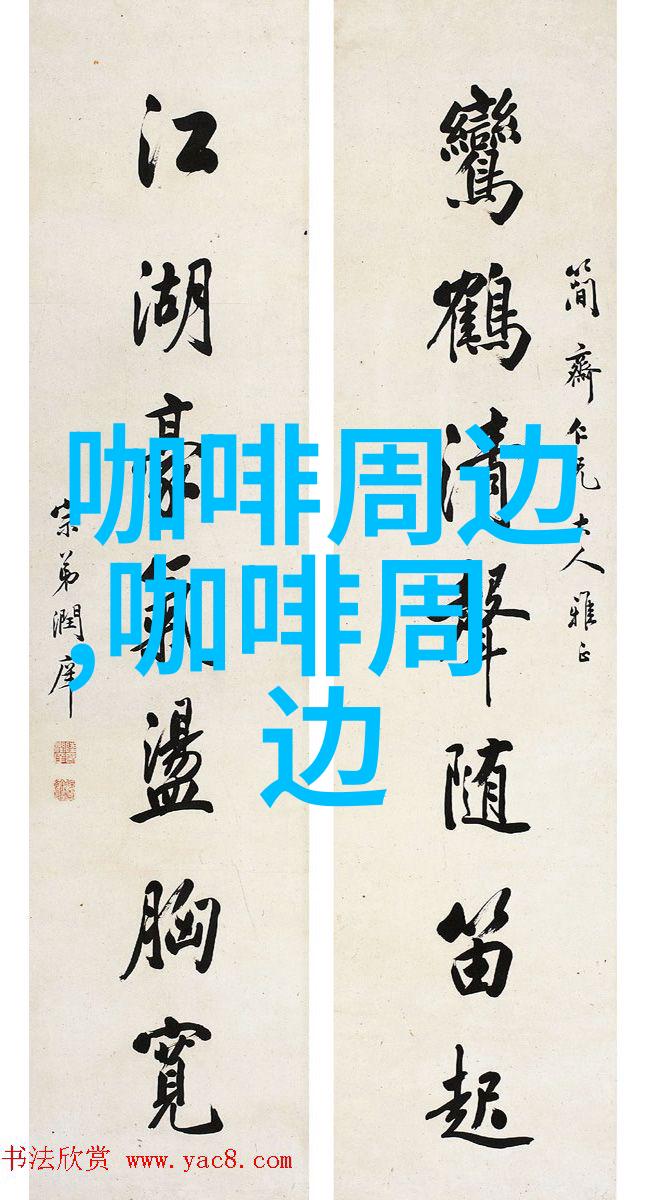 鸞鶴清聲随笛起
簡齋仁兄大人雅正
江湖豪氣盪胸寬
宗弟潤庠
咖啡周边
,咖啡周
边
书法欣赏 www.yac8.com